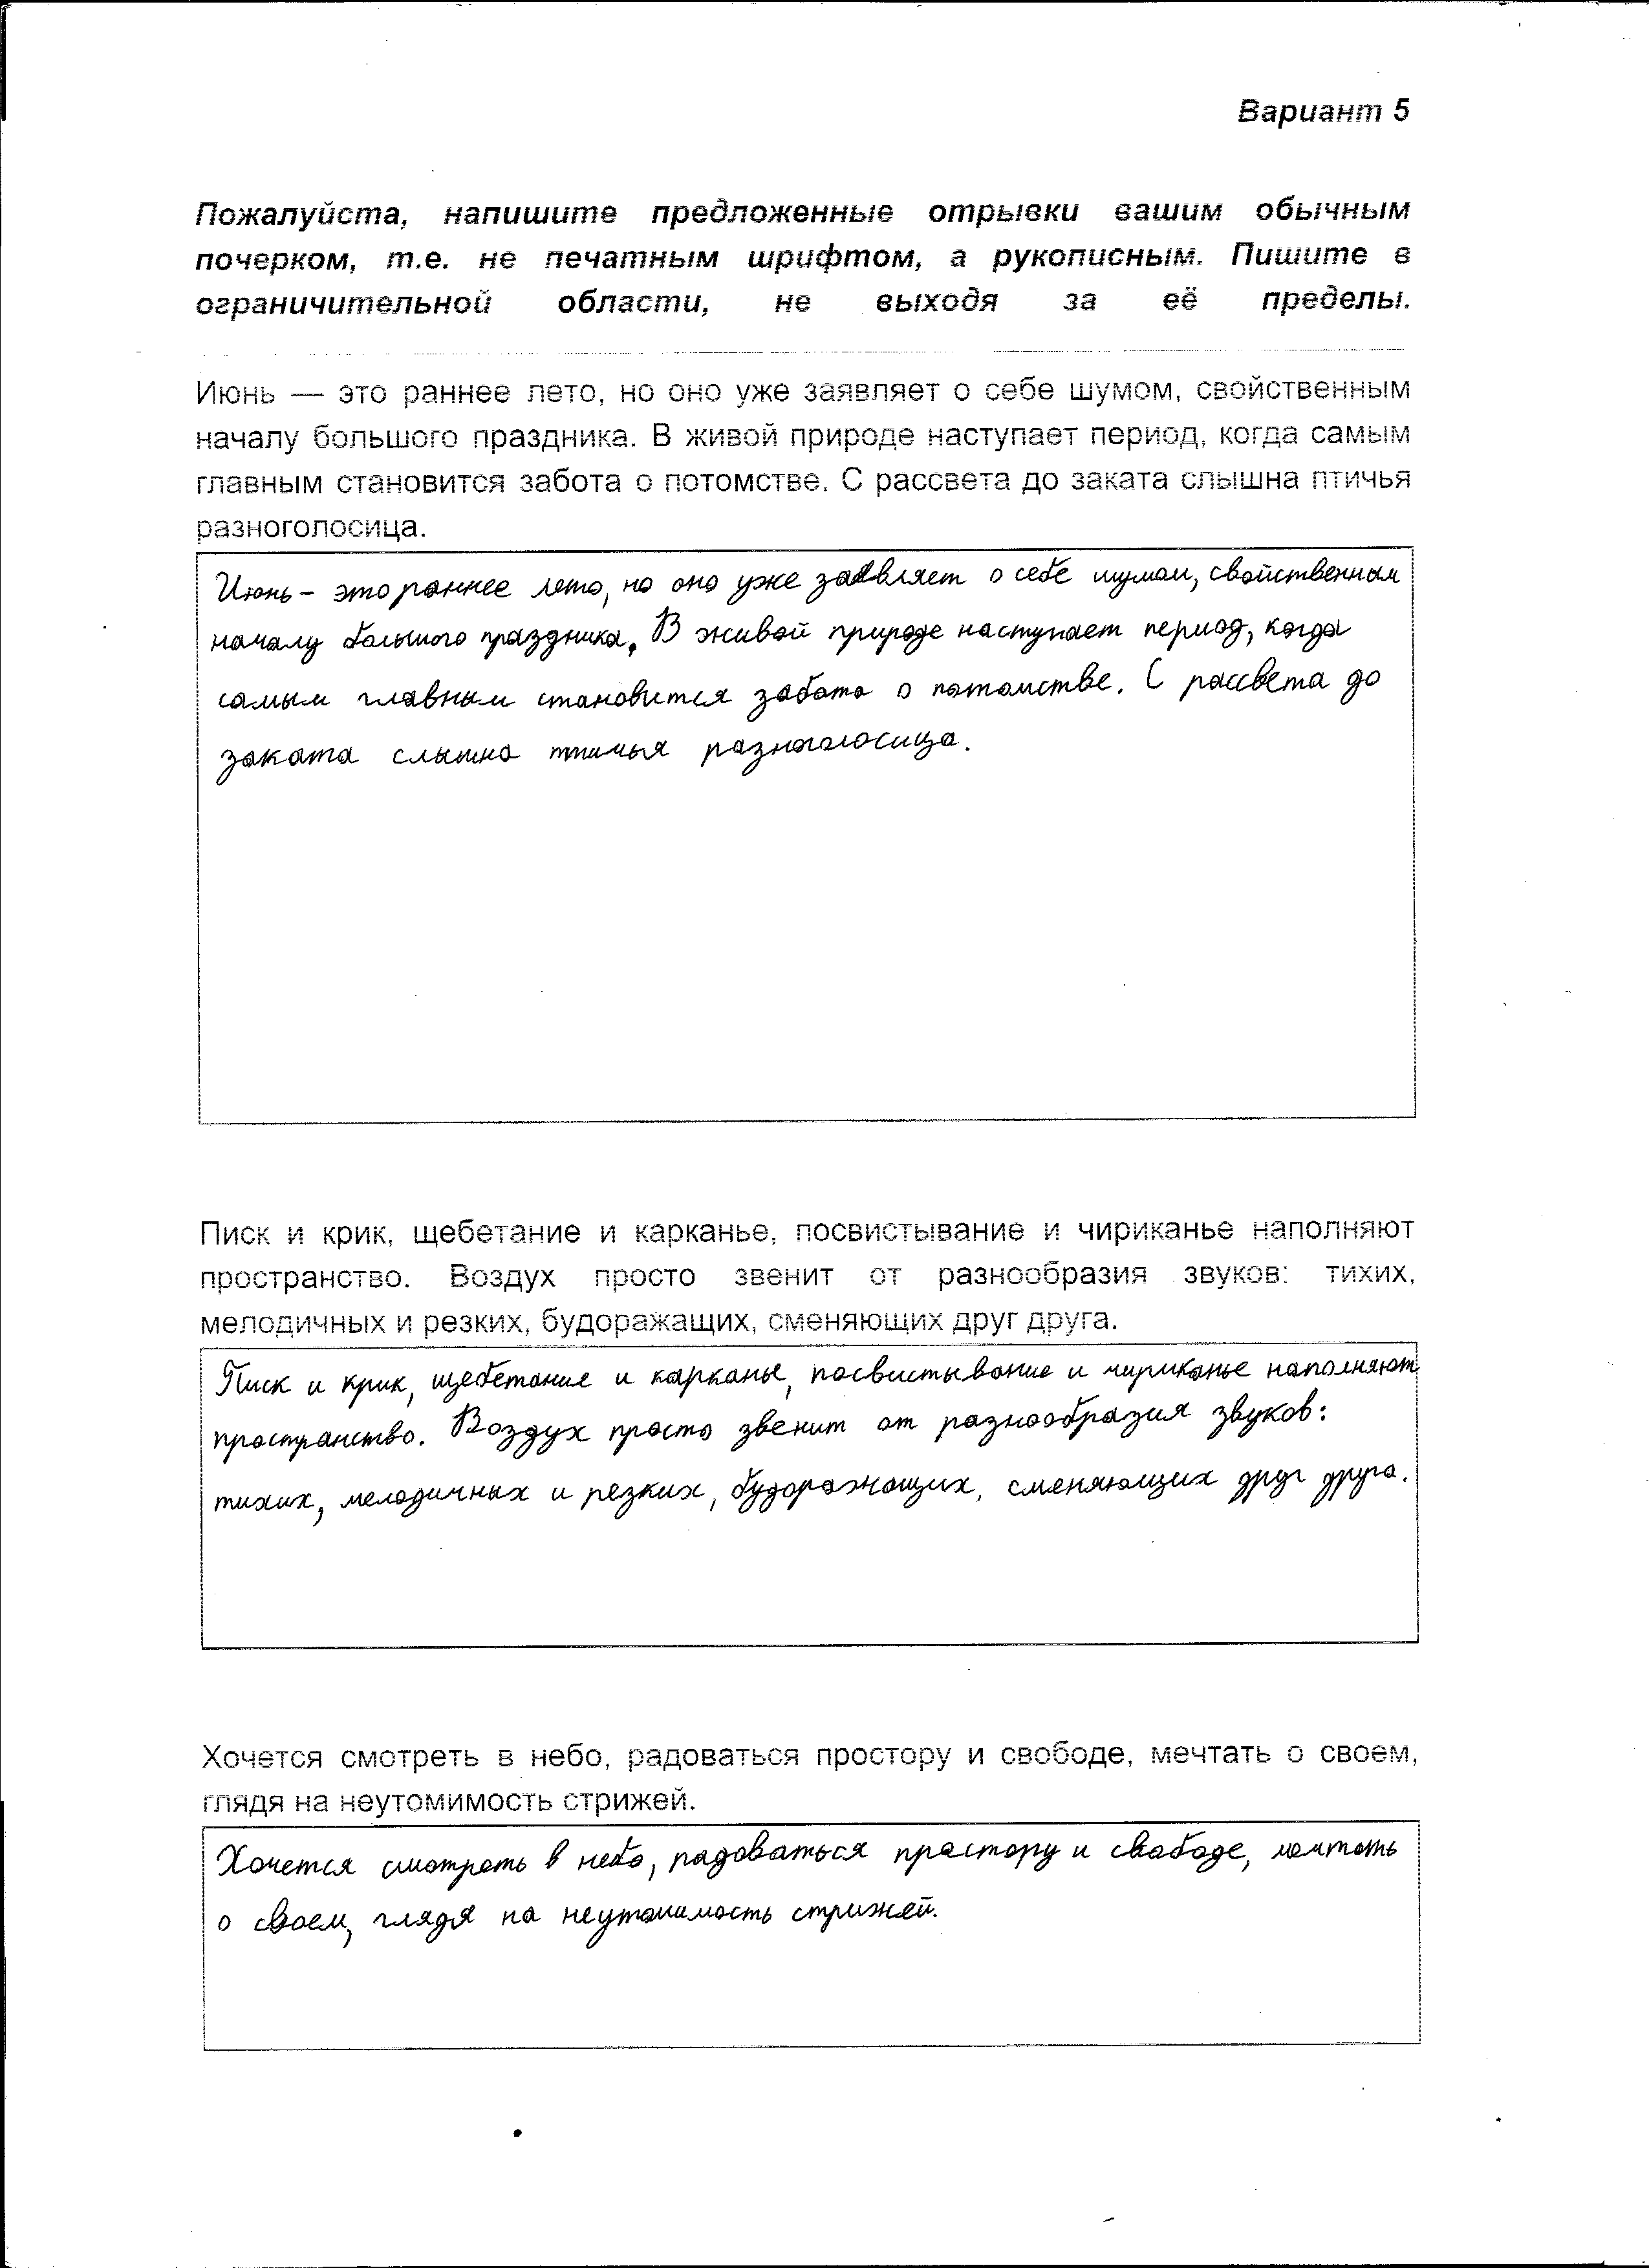 Вариант 5
Пожалуйста, напишите предложенные отрывки вашим обычным
почерком, т.е. не печатным шрифтом, а рукописным. Пишите в
ограничительной области, не выходя за её пределы.
Июнь — это раннее лето, но оно уже заявляет о себе шумом, свойственным
началу большого праздника. В живой природе наступает период, когда самым
главным становится забота о потомстве. С рассвета до заката слышна птичья
разноголосица.
Июнь - это раннее лето, но оно уже заявляет о себе шумом, свойственным
началу большого праздника. В живой природе наступает период, когда
самым главным становится забота о потомстве. С рассвета до
заката слышна птичья разноголосица.
Писк и крик, щебетание и карканье, посвистывание и чириканье наполняют
пространство. Воздух просто звенит от разнообразия звуков: тихих,
мелодичных и резких, будоражащих, сменяющих друг друга.
Писк и крик, щебетание и карканье, посвистывание и чириканье наполняют
пространство. Воздух просто звенит от разнообразия звуков:
тихих, мелодичных и резких, будоражащих, сменяющих друг друга.
Хочется смотреть в небо, радоваться простору и свободе, мечтать о своем,
глядя на неутомимость стрижей.
Хочется смотреть в небо, радоваться простору и свободе, мечтать
о своем, глядя на неутомимость стрижей.